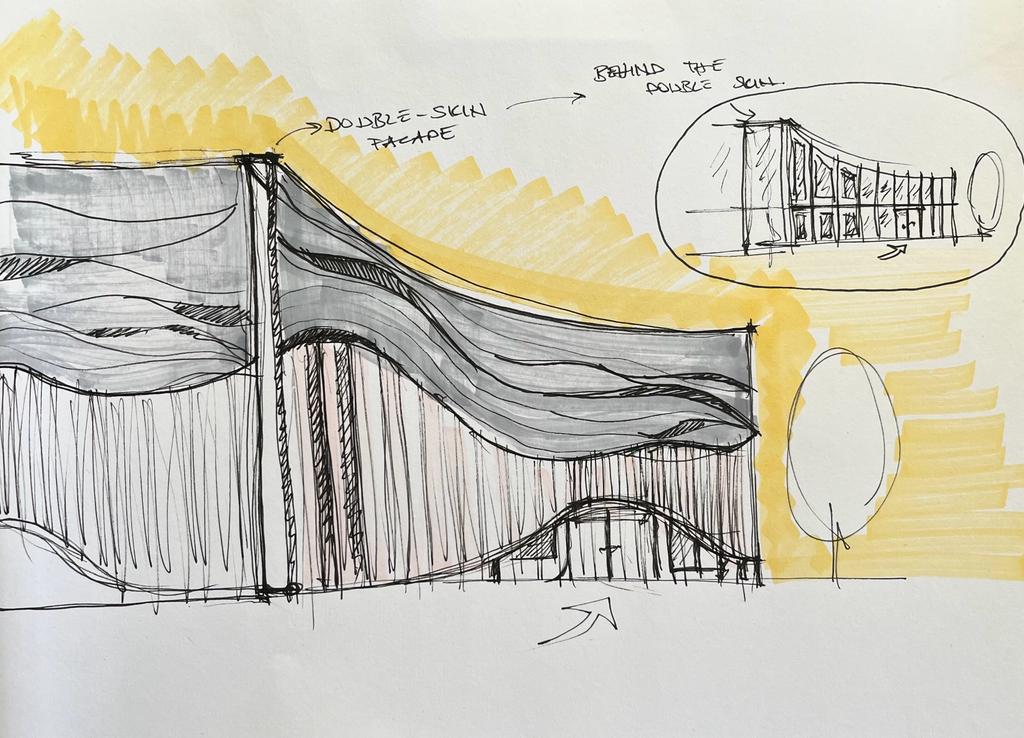 DOUBLE-SKIN
FACADE
BEHIND THE
DOUBLE SKIN.